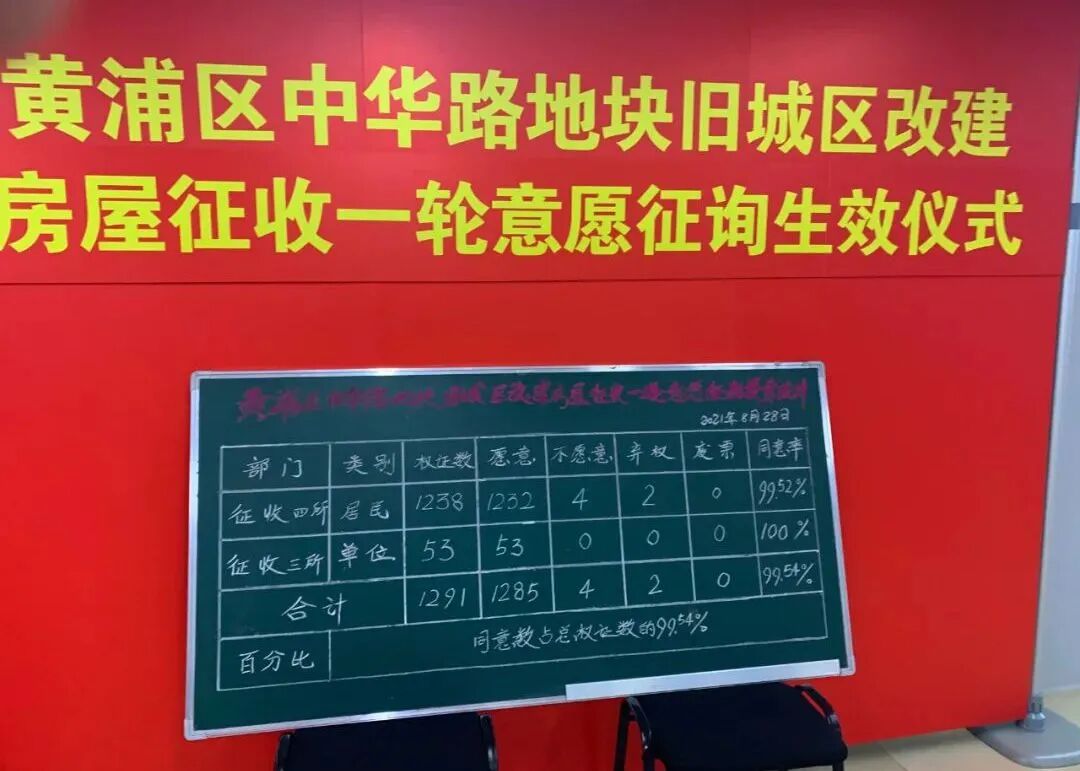 黄浦区中华路地块旧城区改建
房屋征收一轮意愿征询生效仪式
黄浦区中华路地块旧城区改建房屋征收一轮意愿征询
2021年8月28日
部门 类别 权证数 愿意 不愿意 弃权 废票 同意率
征收四所 居民 1238 1232 4 2 0 99.52%
征收三所 单位 53 53 0 0 0 100%
合计 1291 1285 4 2 0 99.54%
百分比 同意数占总权证数的99.54%